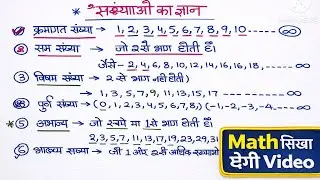 संख्याओ का ज्ञान
① क्रमागत संख्या → 1, 2, 3, 4, 5, 6, 7, 8, 9, 10 ------ ∞
② सम संख्या → जो 2 से भाग होती हैं।
जैसे- 2, 4, 6, 8, 10, 12, 14, 16, 18, ------
③ विषम संख्या → 2 से भाग नहीं होती।
1, 3, 5, 7, 9, 11, 13, 15, 17 ------ ∞
④ पुर्न संख्या → (0, 1, 2, 3, 4, 5, 6, 7, 8,) (-1, -2, -3, -4 ---- ∞
⑤ अभाज्य → जो स्वयं या 1 से भाग होती है।
2, 3, 5, 7, 11, 13, 17, 19, 23, 29, 31
⑥ भाज्य संख्या → जो 1 और 2 से अधिक संख्याओ
Math सिखा
देगी Video